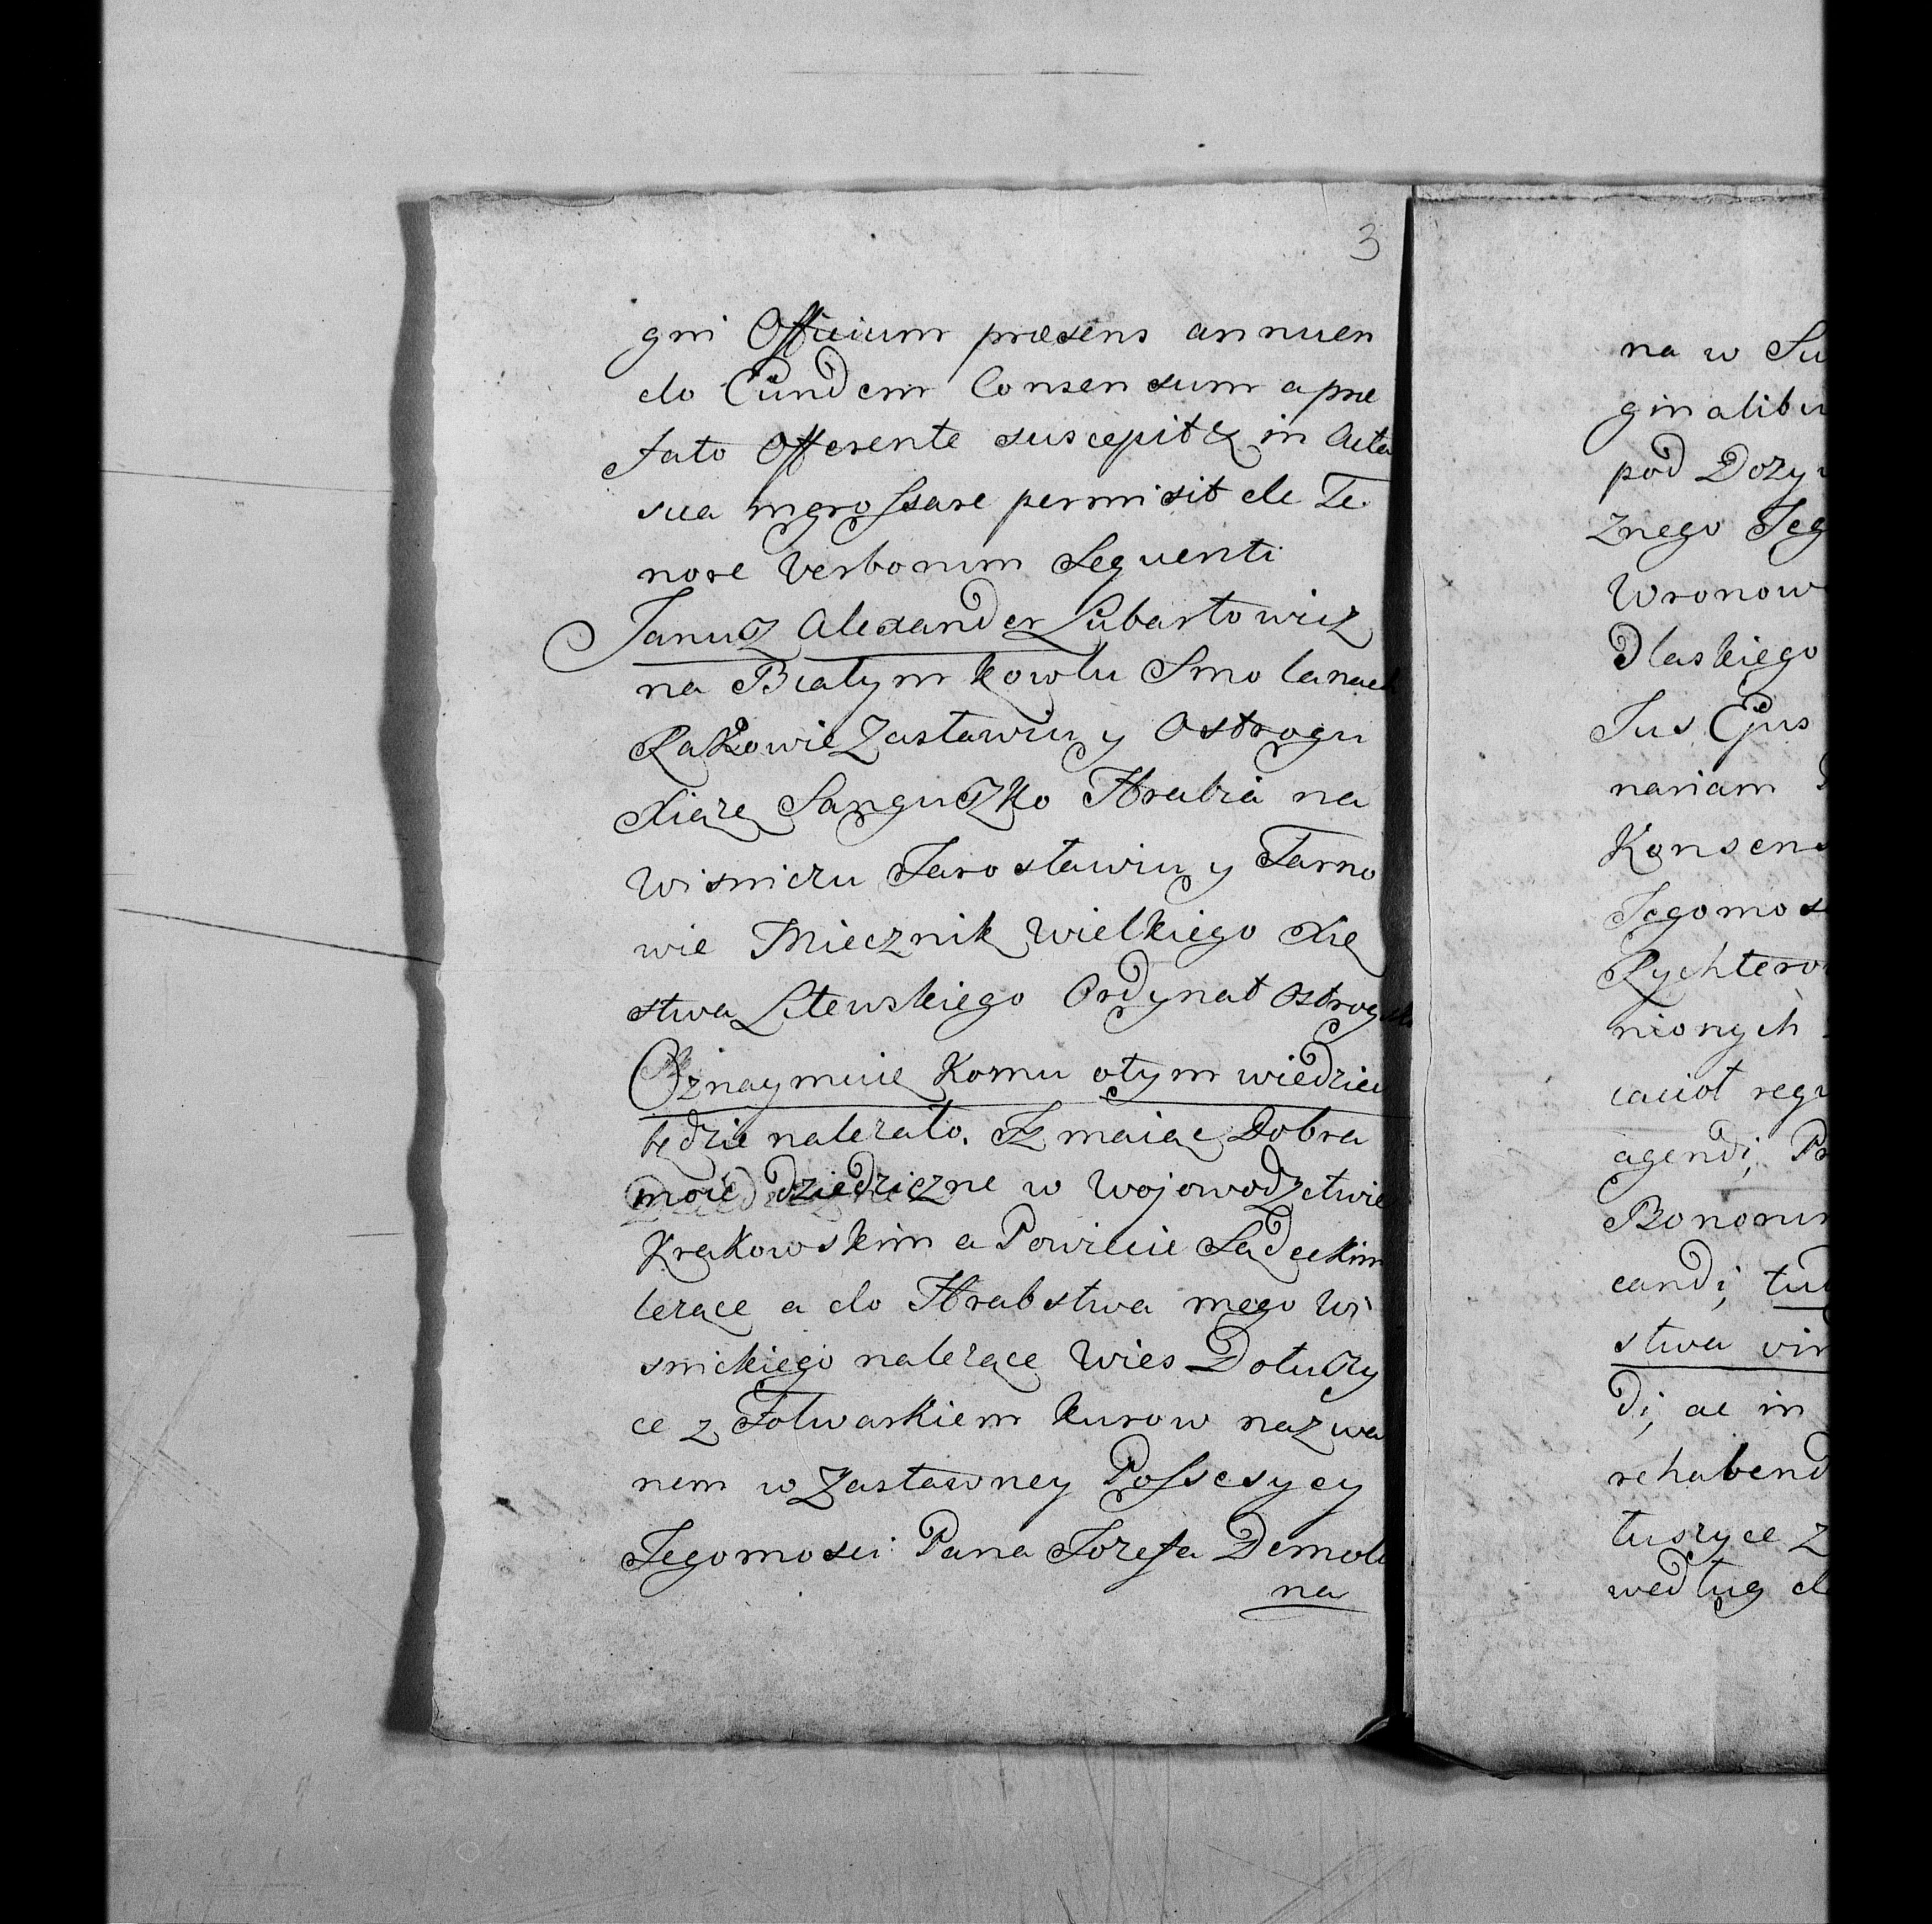 3
gni Officium præsens annuen
do Eundem Consensum a præ
fato Offerente suscepit & in Acta
sua ingrossare permisit de Te
nore Verborum Sequenti
Janusz Alexander Lubartowicz
na Białym Kowlu Smolanach
Rakowie Zasławiu y Ostrogu
Xiąże Sanguszko Hrabia na
Wisniczu Jarosławiu y Tarno
wie Miecznik Wielkiego Xię
stwa Litewskiego Ordynat Ostrogski
Oznaymuię Komu o tym wiedziec
będzie nalezało. Iz maiąc Dobra
moie dziedziczne w Wojowodztwie
Krakowskim a Powiecie Sądeckim
lezące a do Hrabstwa mego Wi
snickiego nalezące Wies Dołuszy
ce z Folwarkiem Kurow nazwa
nem w Zastawney Possesycy
Jegomosci Pana Jozefa Demoli
na
na w Su
ginalibu
pod Dozy
znego Jeg
Wronow
Dlaskiego
Jus Ejus
nariam
Konsens
Jegomos
Rychtero
nionych
caciot regu
agendi, Pr
Bonorum
candi, tu
stwa vin
di, ac in
rehabend
tuszyce z
według d